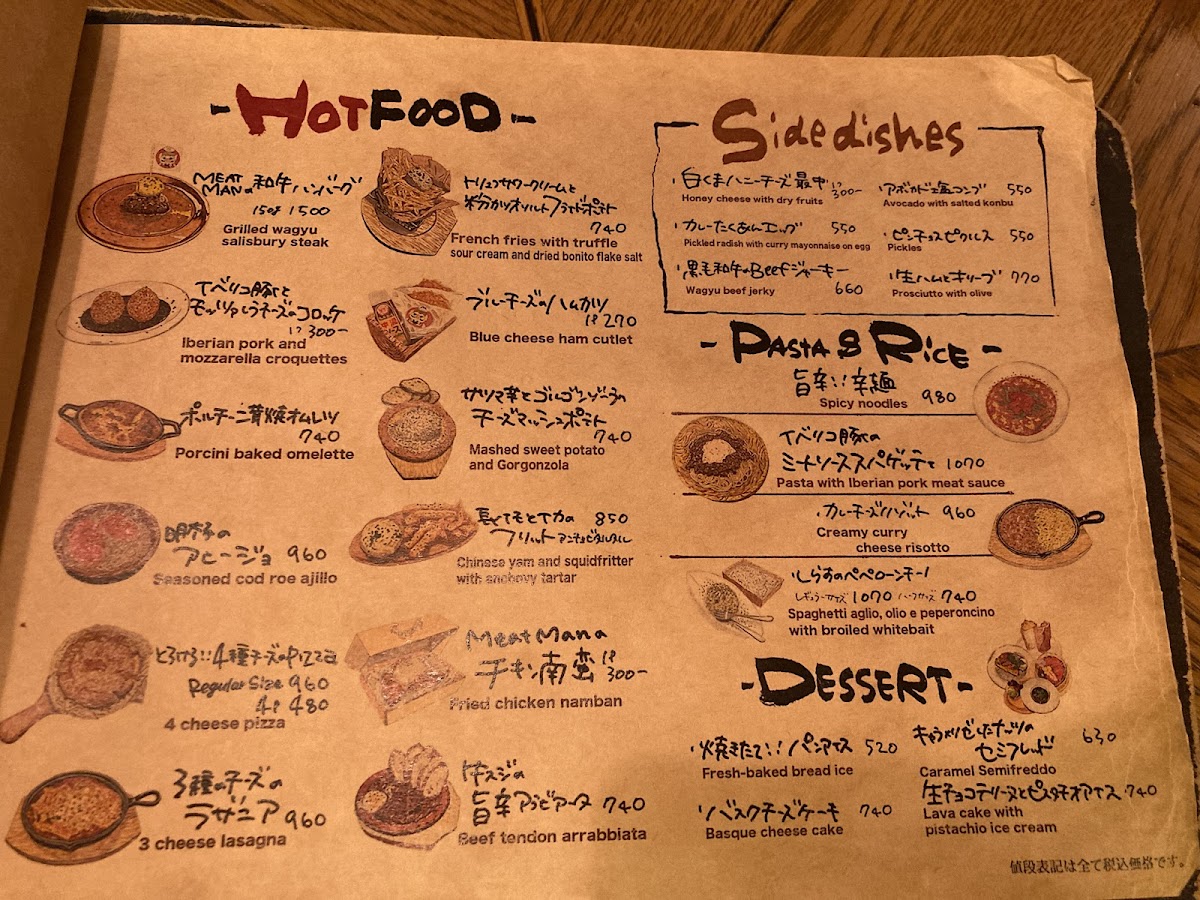 - HOT FOOD -
MEAT
MANの和牛ハンバーグ
150g 1500
Grilled wagyu
salisbury steak
イベリコ豚と
モッツァレラチーズのコロッケ
1P 300-
Iberian pork and
mozzarella croquettes
ポルチーニ茸焼オムレツ
740
Porcini baked omelette
明太子の
アヒージョ 960
Seasoned cod roe ajillo
とろける!!4種チーズのPIZZA
Regular Size 960
4P 480
4 cheese pizza
3種のチーズの
ラザニア 960
3 cheese lasagna
トリュフサワークリームと
粉かつオソルトフライドポテト
740
French fries with truffle
sour cream and dried bonito flake salt
ブルーチーズのハムカツ
1P 270
Blue cheese ham cutlet
サツマ芋とゴルゴンゾーラの
チーズマッシュポテト
740
Mashed sweet potato
and Gorgonzola
長イモとイカの 850
フリット アンチョビタルタル
Chinese yam and squidfritter
with anchovy tartar
Meat Manの
チキン南蛮 1P 300-
Fried chicken namban
牛スジの
旨辛アラビアータ 740
Beef tendon arrabbiata
Side dishes
・白くまハニーチーズ最中 1P 300-
Honey cheese with dry fruits
・アボカド塩コンブ 550
Avocado with salted konbu
・カレーたくあんエッグ 550
Pickled radish with curry mayonnaise on egg
・ピンチョスピクルス 550
Pickles
・黒毛和牛のBeefジャーキー
660
Wagyu beef jerky
・生ハムとオリーブ 770
Prosciutto with olive
- PASTA & RICE -
旨辛!!辛麺 980
Spicy noodles
イベリコ豚の
ミートソーススパゲッティ 1070
Pasta with Iberian pork meat sauce
・カレーチーズリゾット 960
Creamy curry
cheese risotto
・しらすのペペロンチーノ
レギュラーサイズ 1070 ハーフサイズ 740
Spaghetti aglio, olio e peperoncino
with broiled whitebait
- DESSERT -
・焼きたて!!パンアイス 520
Fresh-baked bread ice
・キャラメリゼしたナッツの
セミフレッド 630
Caramel Semifreddo
・バスクチーズケーキ 740
Basque cheese cake
生チョコテリーヌとピスタチオアイス 740
Lava cake with
pistachio ice cream
値段表記は全て税込価格です。